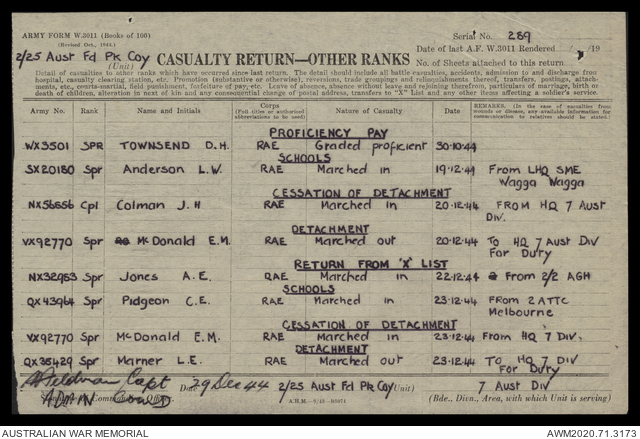 ARMY FORM W.3011 (Books of 100)
(Revised Oct., 1942.)
Serial No. 289
2/25 Aust Fd Pk Coy
(Unit)
CASUALTY RETURN—OTHER RANKS
Date of last A.F. W.3011 Rendered / /19
No. of Sheets attached to this return
Detail of casualties to other ranks which have occurred since last return. The detail should include all battle casualties, accidents, admission to and discharge from
hospital, casualty clearing station, etc. Promotion (substantive or otherwise), reversions, trade groupings and relinquishments thereof, transfers, postings, attachments,
etc., courts-martial, field punishment, forfeiture of pay, etc. Leave of absence, absence without leave and rejoining therefrom, particulars of marriage, birth or
death of children, alteration in next of kin and any consequential change of postal address, transfers to "X" List and any other items affecting a soldier's service.
Army No. Rank Name and Initials Corps (Full titles or authorized abbreviations to be used) Nature of Casualty Date REMARKS. (In the case of casualties from wounds or disease, any available information for communication to relatives should be stated.)
PROFICIENCY PAY
WX3501 SPR TOWNSEND D.H. RAE Graded proficient 30-10-44
SCHOOLS
SX20180 Spr Anderson L.W. RAE Marched in 19-12-44 From LHQ SME
Wagga Wagga
CESSATION OF DETACHMENT
NX56856 Cpl Colman J.H RAE Marched in 20-12-44 FROM HQ 7 Aust
Div.
DETACHMENT
VX92770 Spr McDonald E.M. RAE Marched out 20-12-44 To HQ 7 Aust Div
For Duty
RETURN FROM 'X' LIST
NX32953 Spr Jones A.E. RAE Marched in 22-12-44 From 2/2 AGH
SCHOOLS
QX43964 Spr Pidgeon C.E. RAE Marched in 23-12-44 From 2 ATTC
Melbourne
CESSATION OF DETACHMENT
VX92770 Spr McDonald E.M. RAE Marched in 23-12-44 From HQ 7 Div.
DETACHMENT
QX35429 Spr Marner L.E. RAE Marched out 23-12-44 To HQ 7 Div
For Duty
Capt Date 29 Dec 44 2/25 Aust Fd Pk Coy (Unit) 7 Aust Div
(Bde., Divn., Area, with which Unit is serving)
AUSTRALIAN WAR MEMORIAL
AWM2020.71.3173